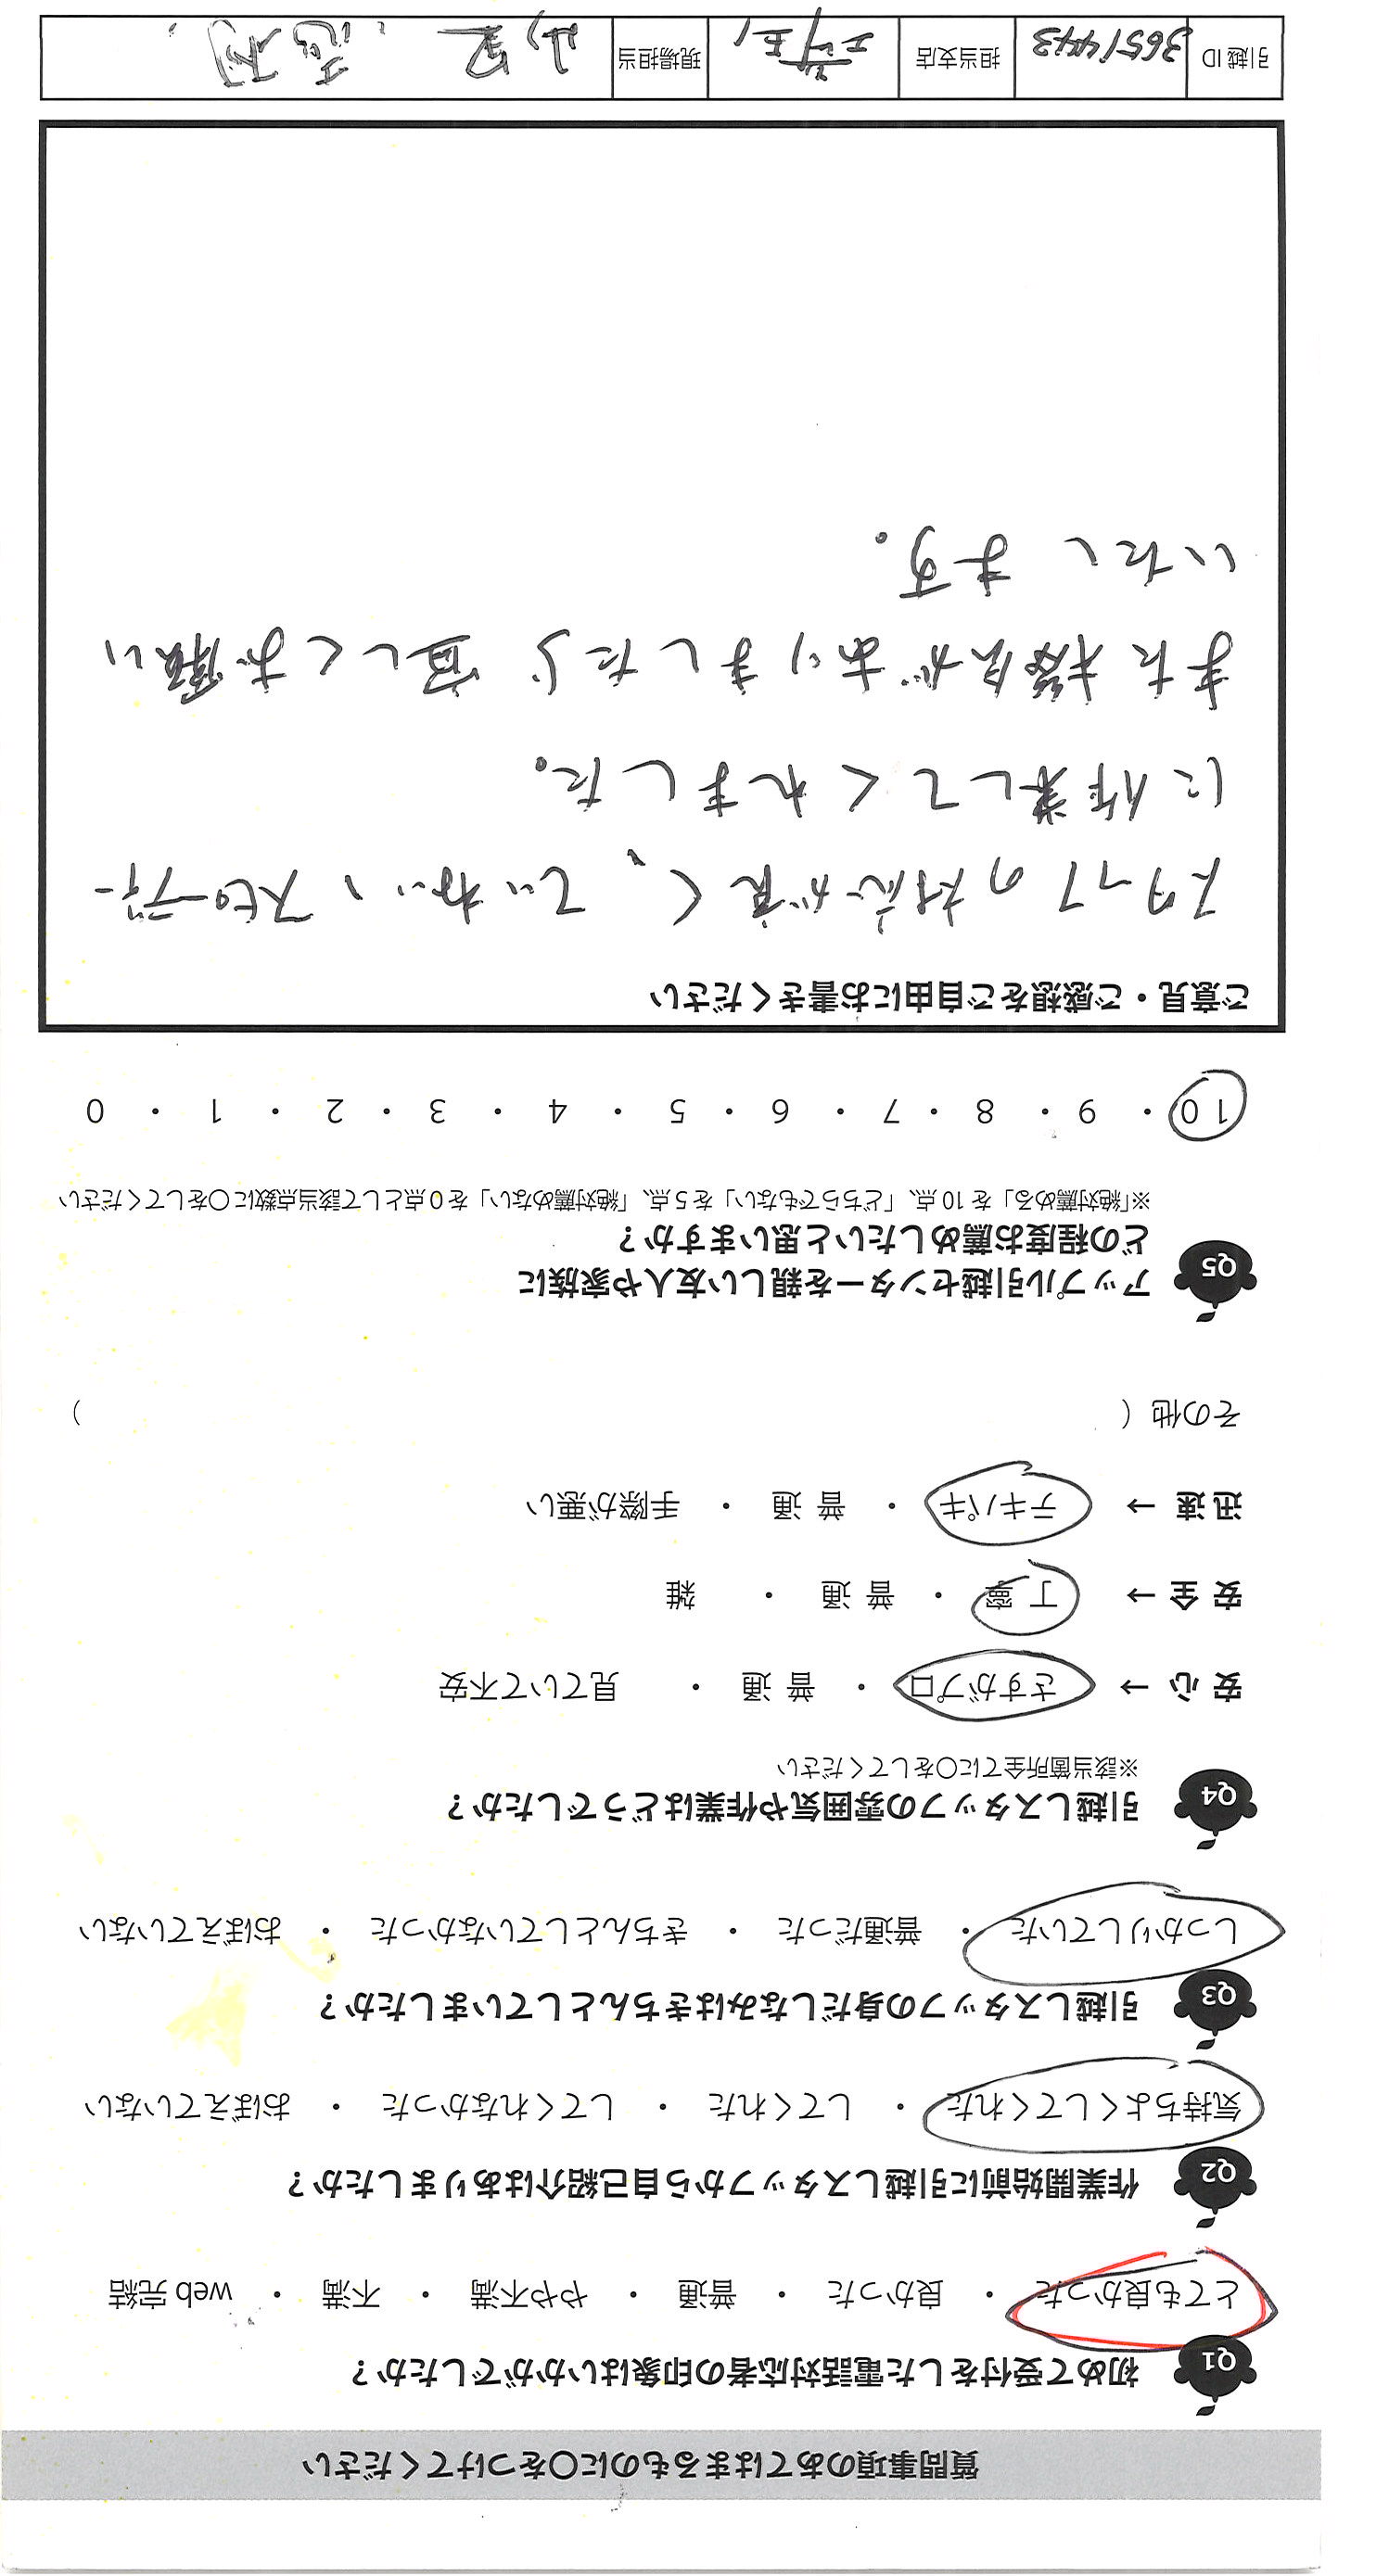 質問事項のあてはまるものに〇をつけてください
Q1 初めて受付をした電話対応者の印象はいかがでしたか？
とても良かった ・ 良かった ・ 普通 ・ やや不満 ・ 不満 ・ web 完結
Q2 作業開始前に引越しスタッフから自己紹介はありましたか？
気持ちよくしてくれた ・ してくれた ・ してくれなかった ・ おぼえていない
Q3 引越しスタッフの身だしなみはきちんとしていましたか？
しっかりしていた ・ 普通だった ・ きちんとしていなかった ・ おぼえていない
Q4 引越しスタッフの雰囲気や作業はどうでしたか？
※該当箇所全てに〇をしてください
安 心 → さすがプロ ・ 普 通 ・ 見ていて不安
安 全 → 丁 寧 ・ 普 通 ・ 雑
迅 速 → テキパキ ・ 普 通 ・ 手際が悪い
その他（ ）
Q5 アップル引越センターを親しい友人や家族に
どの程度お薦めしたいと思いますか？
※「絶対薦める」を 10 点、「どちらでもない」を 5 点、「絶対薦めない」を 0 点として該当点数に〇をしてください
10 ・ 9 ・ 8 ・ 7 ・ 6 ・ 5 ・ 4 ・ 3 ・ 2 ・ 1 ・ 0
ご意見・ご感想をご自由にお書きください
スタッフの対応が良く、ていねい、スピーディー
に作業してくれました。
また機会がありましたら宜しくお願い
いたします。
引越 ID 3651443 担当支店 埼玉 現場担当 山里、志村